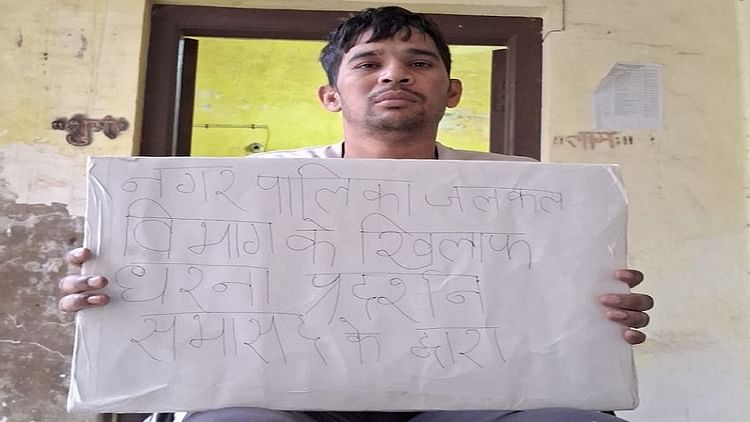 शुभ
लाभः
नगर पालिका जलकल
विभाग के खिलाफ
धरना प्रदर्शन
सभासद के द्वारा